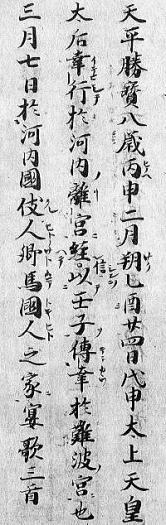 天平勝寶八歳丙申二月朔乙酉廿四日戊申太上天皇
太后幸行於河内離宮經信以壬子傳幸於難波宮也
三月七日於河内國伎人郷馬國人之家宴歌三首